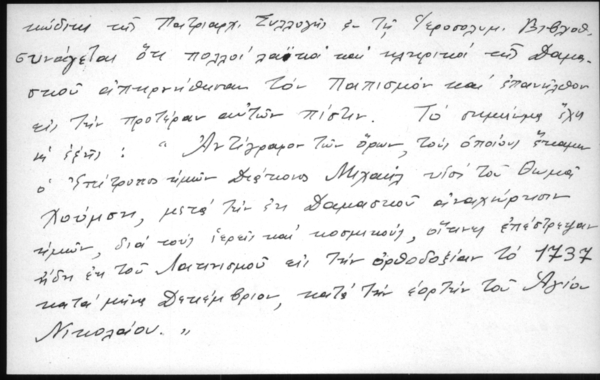 κώδικι τῆς Πατριαρχ. Συλλογῆς ἐν τῇ Ἱεροσολυμ. Βιβλιοθ.
συνάγεται ὅτι πολλοί λαϊκοί καί κληρικοί τῆς Δαμα-
σκοῦ ἀπηρνήθησαν τόν Παπισμόν καί ἐπανῆλθον
εἰς τήν προτέραν αὐτῶν πίστιν. Τό σημείωμα ἔχει
ὡς ἑξῆς: "Ἀντίγραφον τῶν ὅρων, τούς ὁποίους ἔκαμεν
ὁ Ἐπίτροπος ἡμῶν Διάκονος Μιχαήλ υἱός τοῦ Θωμᾶ
Χούμση, μετά τήν ἐκ Δαμασκοῦ ἀναχώρησιν
ἡμῶν, διά τούς ἱερεῖς καί κοσμικούς, οἵτινες ἐπέστρεψαν
ἤδη ἐκ τοῦ Λατινισμοῦ εἰς τήν ὀρθοδοξίαν τό 1737
κατά μῆνα Δεκέμβριον, κατά τήν ἑορτήν τοῦ Ἁγίου
Νικολάου."